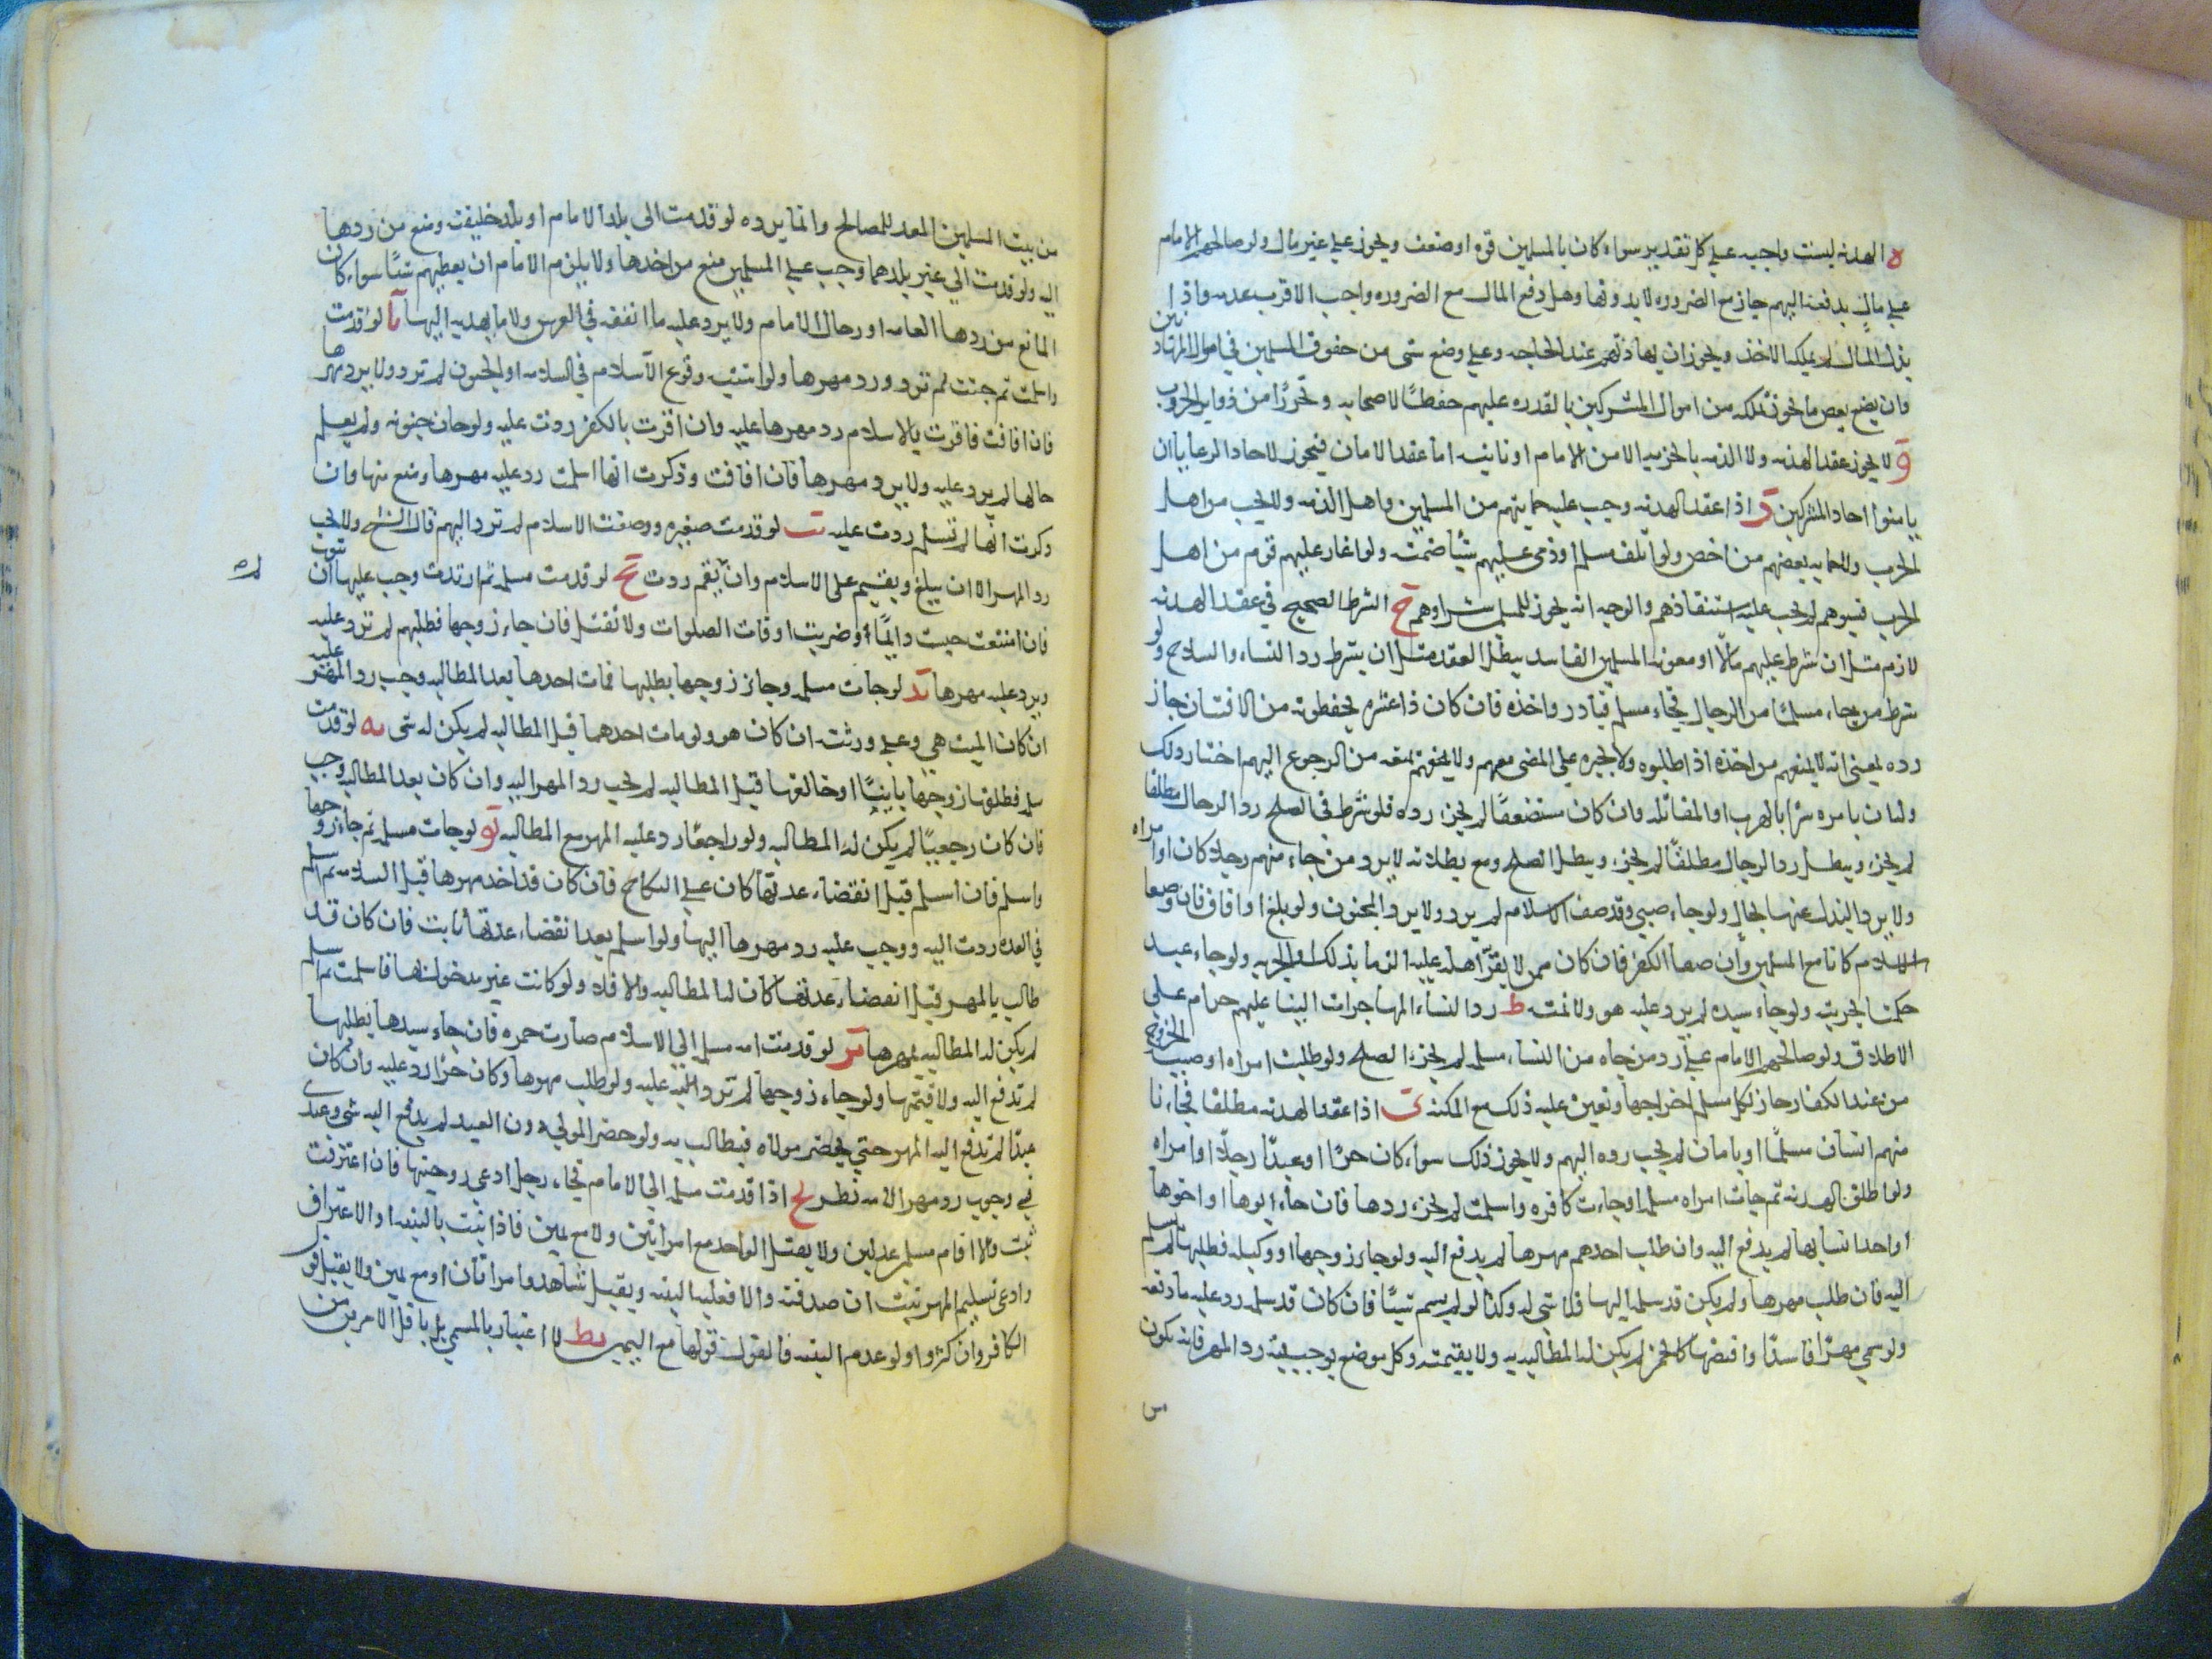 ه الهدنه ليست واجبه على كل تقدير سواء كان بالمسلمين قوه او ضعف ويجوز على غير مال ولو صالحهم الامام
على مال يدفعه اليهم جاز مع الضروره لا بدونها وهل دفع المال مع الضروره واجب الاقرب عدمه واذا
بذل المال لم يملكه الاخذ ويجوز ان يهادنهم عند الحاجه وعلى وضع شى من حقوق المسلمين في اموال المهادنين
وان يضع بعض ما يجوز تملكه من اموال المشركين بالقدره عليهم حفظًا لاصحابه وتحرزًا من دواير الحروب
و لا يجوز عقد الهدنه ولا الذمه بالجزيه الا من الامام او نايبه اما عقد الامان فيجوز لاحاد الرعايا ان
يامنوا احاد المشركين ز اذا عقد الهدنه وجب عليه حمايتهم من المسلمين واهل الذمه ولا يجب من اهل
الحرب ولا حمايه بعضهم من بعض ولو اتلف مسلم او ذمى عليهم شيًا ضمنه ولو اغار عليهم قوم من اهل
الحرب فسبوهم لم يجب عليه استنقاذهم والوجه انه يجوز للمسلم شراوهم ح الشرط الصحيح في عقد الهدنه
لازم مثل ان شرط عليهم مالًا او معونه المسلمين الفاسد يبطل العقد مثل ان يشرط رد النساء والسلاح ولو
شرط من جاء مسلمًا من الرجال فجاء مسلم فبادر واخذه فان كان ذا عشيره يحفظونه من الافتتان جاز
رده بمعنى انه لا يمنعهم من اخذه اذا طلبوه ولا يجبره على المضى معهم ولا يمنعه من الرجوع اليهم اختار ذلك
وله ان يامره سرًا بالهرب او المقاتله وان كان مستضعفًا لم يجز رده فلو شرط في الصلح رد الرجال مطلقا
لم يجز ويبطل رد الرجال مطلقًا لم يجز ويبطل الصلح ومع بطلانه لا يرد من جاء منهم رجلا كان او امراه
ولا يرد البذل عنها بحال ولو جاء صبي وقد صف الاسلام لم يرد ولا يرد المجنون ولو بلغ او افاق فان وصفا
الاسلام كانا مع المسلمين وان صفا الكفر فان كان ممن لا يقر اهله عليه الزما بذلك او الحرب ولو جاء عبد
حكمنا بحريته ولو جاء سيده لم يرد عليه هو ولا ثمنه ط رد النساء المهاجرات الينا عليهم حرام على
الاطلاق ولو صالحهم الامام على رد من جاء من النساء مسلمه لم يجز الصلح ولو طلبت امراه او صبيه الخروج
من عند الكفار جاز لكل مسلم اخراجها وتعين عليه ذلك مع المكنه ى اذا عقد الهدنه مطلقا فجاءنا
منهم انسان مسلمًا او بامان لم يجب رده اليهم ولا يجوز ذلك سواء كان حرًا او عبدًا رجلًا او امراه
ولو اطلق الهدنه ثم جات امراه مسلمه او جاءت كافره واسلمت لم يجز ردها فان جاء ابوها او اخوها
او احد انسابها لم يدفع اليه وان طلب احدهم مهرها لم يدفع اليه ولو جاء زوجها او وكيله فطلبها لم تسلم
اليه فان طلب مهرها ولم يكن قد سلمه اليها فلا شى له وكذا لو لم يسم شيًا فان كان قد سلمه رد عليه ما دفعه
ولو سمى مهرًا فاسدًا واقبضها كالخمر لم يكن له المطالبه به ولا بقيمته وكل موضع يوجب فيه رد المهر فانه يكون
من
من بيت المسلمين المعد للمصالح وانما يرده لو قدمت الى بلد الامام او بلد خليفته ومنع من ردها
اليه ولو قدمت الى غير بلدهما وجب على المسلمين منع من اخذها ولا يلزم الامام ان يعطيهم شيًا سواء كان
المانع من ردها العامه او رجال الامام ولا يرد عليه ما انفقه في العرس ولا ما اهديه اليها يا لو قدمت
واسلمت ثم جنت لم ترد ورد مهرها ولو اشتبه وقوع الاسلام في السلامه او الجنون لم ترد ولا يرد مهرها
فان افاقت فاقرت بالاسلام رد مهرها عليه وان اقرت بالكفر ردت عليه ولو جات مجنونه ولم يعلم
حالها لم يرد عليه ولا يرد مهرها فان افاقت وذكرت انها اسلمت رد عليه مهرها ومنع منها وان
ذكرت انها لم تسلم ردت عليه يب لو قدمت صغيره ووصفت الاسلام لم ترد اليهم قال الشيخ ولا يجب
رد المهر الا ان يبلغ ويقيم على الاسلام وان لم يقم ردت يج لو قدمت مسلمه ثم ارتدت وجب عليها ان تتوب
فان امتنعت حبست دايمًا وضربت اوقات الصلوات ولا تقتل فان جاء زوجها فطلبهم لم ترد عليه
ويرد عليه مهرها يد لو جات مسلمه وجاء زوجها يطلبها فمات احدها بعد المطالبه وجب رد المهر عليه
ان كان الميت هي وعلى ورثته ان كان هو ولو مات احدهما قبل المطالبه لم يكن له شى يه لو قدمت
مسلمه فطلقها زوجها باينًا او خالعها قبل المطالبه لم يجب رد المهر اليه وان كان بعد المطالبه وجب
فان كان رجعيًا لم يكن له المطالبه ولو راجعها رد عليه المهر مع المطالبه يو لو جات مسلمه ثم جاء زوجها
واسلم فان اسلم قبل انقضاء عدتها كان على النكاح فان كان قد اخذ مهرها قبل اسلامه ثم اسلم
في العده ردت اليه ووجب عليه رد مهرها اليها ولو اسلم بعد انقضاء عدتها بانت فان كان قد
طالب بالمهر قبل انقضاء عدتها كان له المطالبه والا فلا ولو كانت غير مدخول بها فاسلمت ثم اسلم
لم يكن له المطالبه بمهرها يز لو قدمت امه مسلمه الى الاسلام صارت حره فان جاء سيدها يطلبها
لم تدفع اليه ولا قيمتها ولو جاء زوجها لم ترد عليه ولو طلب مهرها وكان حرًا رد عليه وان كان
عبدًا لم تدفع اليه المهر حتى يحضر مولاه فيطالب به ولو حضر المولى دون العبد لم يدفع اليه شى وعندى
في وجوب رد مهر الامه نظر يح اذا قدمت مسلمه الى الامام فجاء رجل ادعى زوجيتها فان اعترفت
ثبت والا اقام مسلمين عدلين ولا يقبل الواحد مع امراتين ولا مع يمين فاذا ثبت بالبينه او الاعتراف
وادعى تسليم المهر ثبت ان صدقته والا فعليه البينه ويقبل شاهد وامراتان او مع يمين ولا يقبل قول
الكافر وان كثروا ولو عدم البينه فالقول قولها مع اليمين يط لا اعتبار بالمسمى بل باقل الامرين من